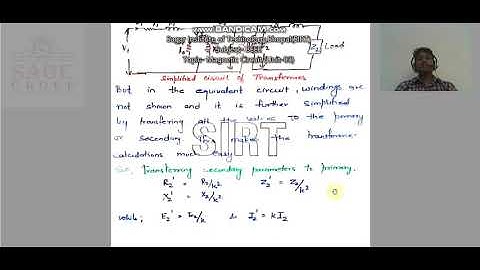 www.BANDICAM.com
Sagar Institute of Technology, Bhopal(SIRT)
Subject- BEEE
Topic- Magnetic Circuit (Unit-03)
V₁
Z₂
Load
Simplified circuit of Transformer
But in the equivalent circuit, windings are
not shown and it is further simplified
by transfering all the values to the primary
or secondary make the transformer
calculations much easy
SIRT
Transferring secondary parameters to primary.
R₂' = R₂/k² Z₂' = Z₂/k²
X₂' = X₂/k²
while, E₂' = E₂/k & I₂' = kI₂
GROUP